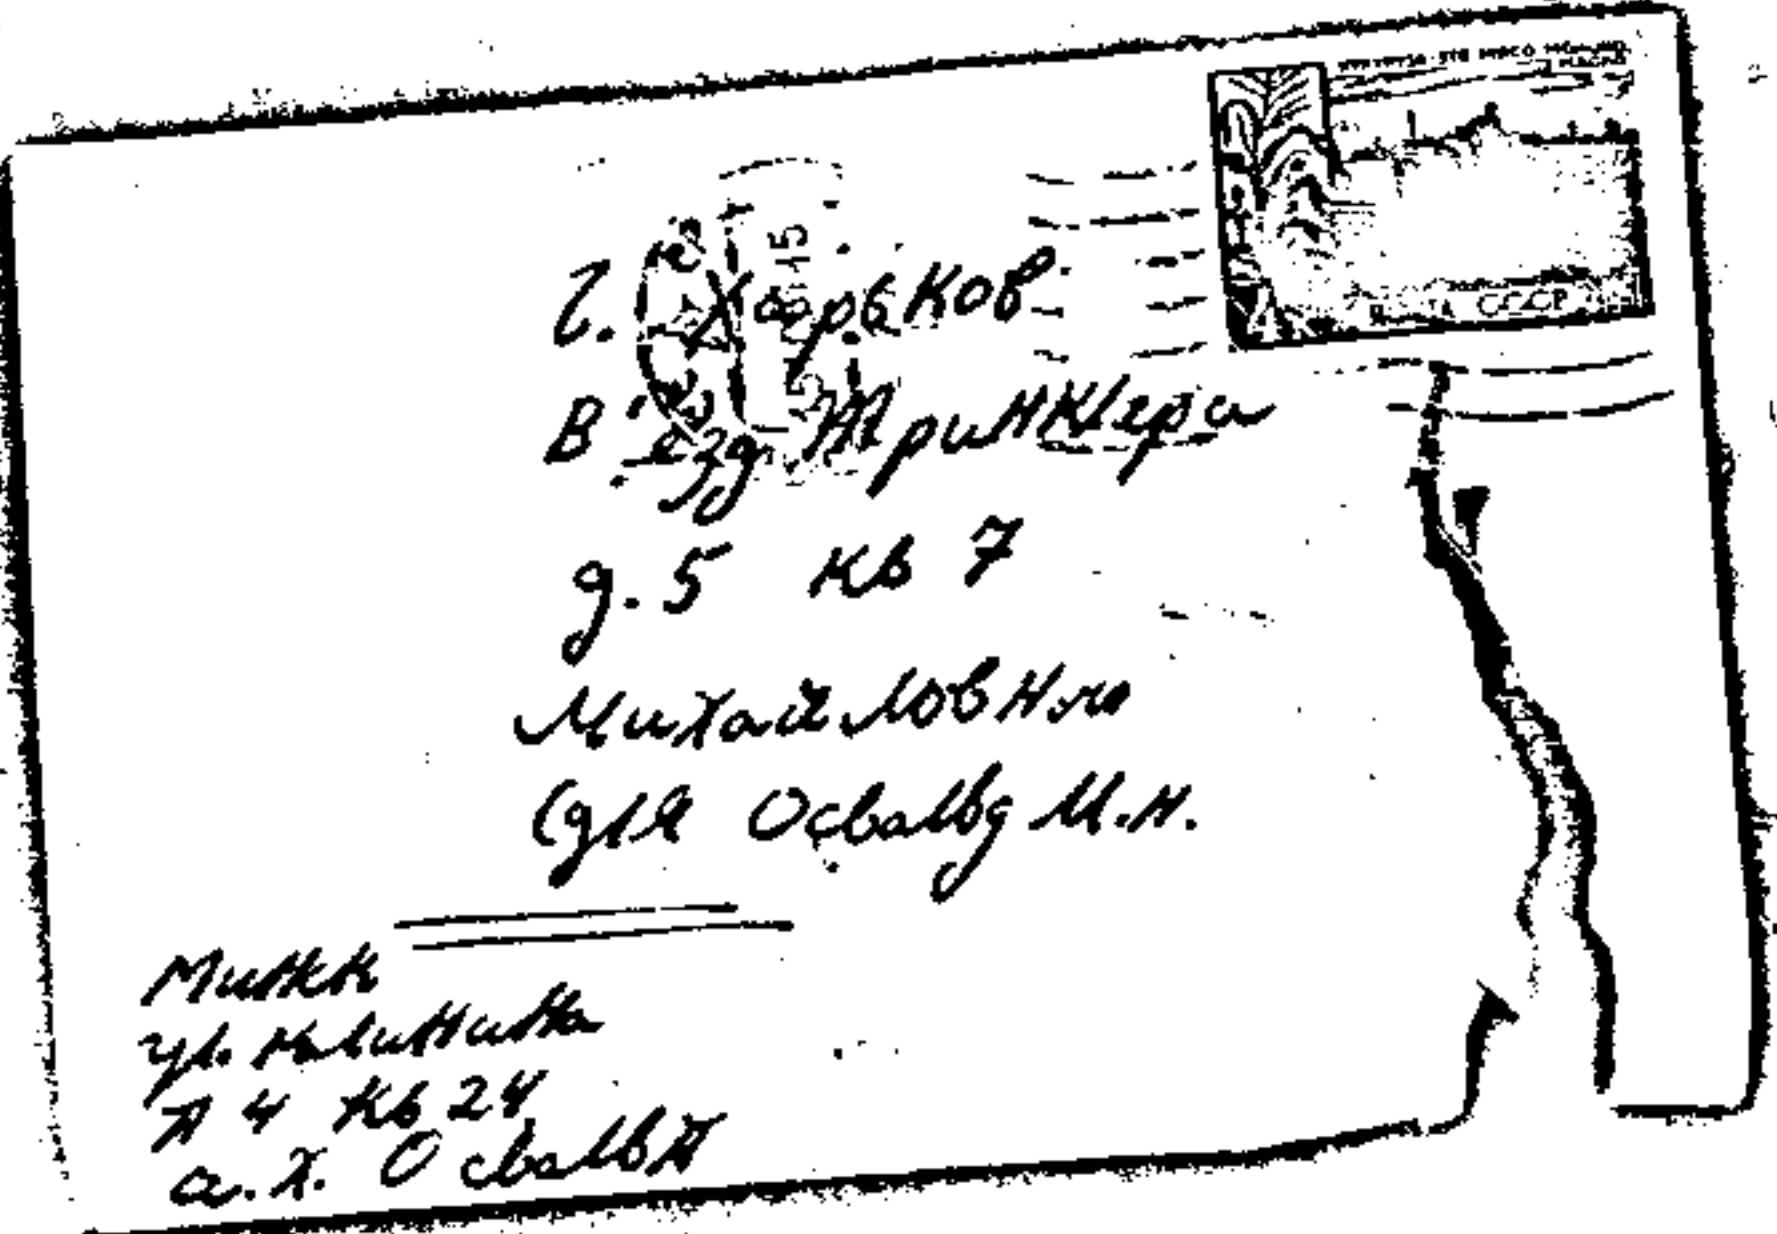 ПОЧТА СССР
г. Харьков
Въезд Тринклера
д. 5 кв 7
Михайловны
(для Освальд М.Н.
Минск
ул. Калинина
д 4 кв 24
а. Х. Освальд